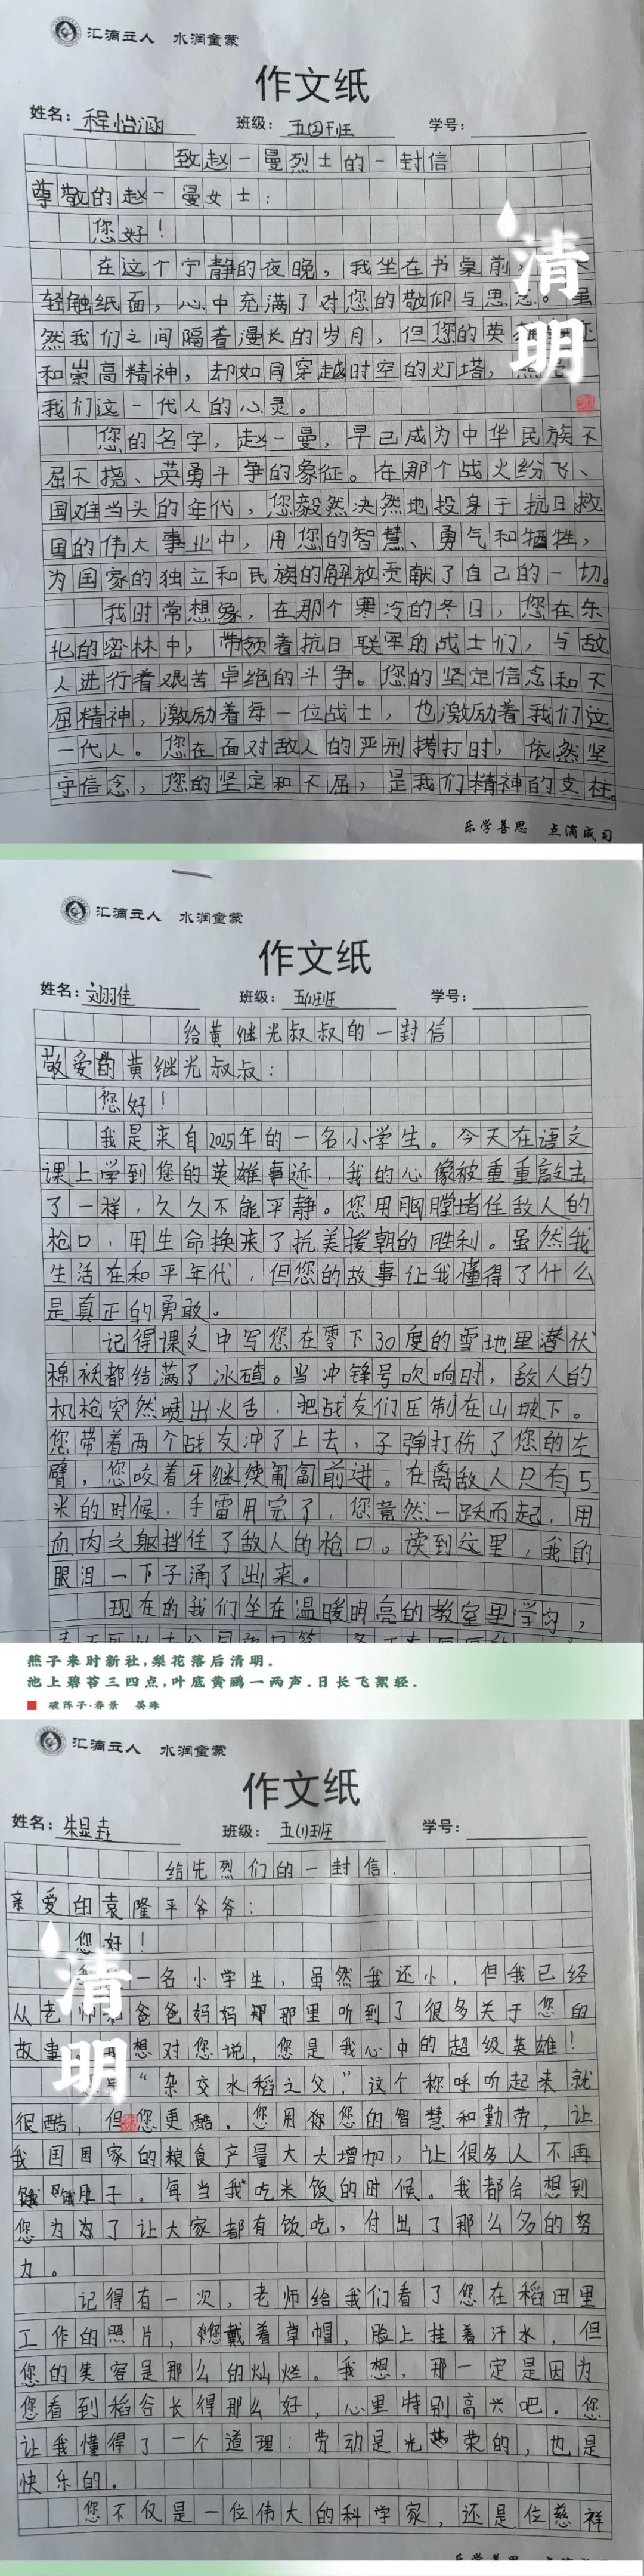 汇滴立人 水润童蒙
作文纸
姓名: 程怡涵 班级: 五(2)班 学号:
致赵一曼烈士的一封信
尊敬的赵一曼女士:
您好!
在这个宁静的夜晚,我坐在书桌前,
轻触纸面,心中充满了对您的敬仰与思念。虽
然我们之间隔着漫长的岁月,但您的英
和崇高精神,却如同穿越时空的灯塔,
我们这一代人的心灵。
清明
您的名字,赵一曼,早已成为中华民族不
屈不挠、英勇斗争的象征。在那个战火纷飞、
国难当头的年代,您毅然决然地投身于抗日救
国的伟大事业中,用您的智慧、勇气和牺牲,
为国家的独立和民族的解放贡献了自己的一切。
我时常想象,在那个寒冷的冬日,您在东
北的密林中,带领着抗日联军的战士们,与敌
人进行着艰苦卓绝的斗争。您的坚定信念和不
屈精神,激励着每一位战士,也激励着我们这
一代人。您在面对敌人的严刑拷打时,依然坚
守信念,您的坚定和不屈,是我们精神的支柱。
乐学善思 点滴成司
汇滴立人 水润童蒙
作文纸
姓名: 刘羽佳 班级: 五(2)班 学号:
给黄继光叔叔的一封信
敬爱的黄继光叔叔:
您好!
我是来自2025年的一名小学生。今天在语文
课上学到您的英雄事迹,我的心像被重重敲击
了一样,久久不能平静。您用胸膛堵住敌人的
枪口,用生命换来了抗美援朝的胜利。虽然我
生活在和平年代,但您的故事让我懂得了什么
是真正的勇敢。
记得课文中写您在零下30度的雪地里潜伏
棉袄都结满了冰碴。当冲锋号吹响时,敌人的
机枪突然喷出火舌,把战友们压制在山坡下。
您带着两个战友冲了上去,子弹打伤了您的左
臂,您咬着牙继续匍匐前进。在离敌人只有5
米的时候,手雷用完了,您竟然一跃而起,用
血肉之躯挡住了敌人的枪口。读到这里,我的
眼泪一下子涌了出来。
现在的我们坐在温暖明亮的教室里学习,
燕子来时新社,梨花落后清明.
池上碧苔三四点,叶底黄鹂一两声.日长飞絮轻.
破阵子·春景 晏殊
汇滴立人 水润童蒙
作文纸
姓名: 朱显垚 班级: 五(1)班 学号:
给先烈们的一封信.
亲爱的袁隆平爷爷:
您好!
一名小学生,虽然我还小,但我已经
从老师和爸爸妈妈那里听到了很多关于您的
故事 想对您说,您是我心中的超级英雄!
清明
“杂交水稻之父”这个称呼听起来就
很酷,但您更酷.您用您的智慧和勤劳,让
我国国家的粮食产量大大增加,让很多人不再
饿肚子.每当我吃米饭的时候。我都会想到
您为了让大家都有饭吃,付出了那么多的努
力。
记得有一次,老师给我们看了您在稻田里
工作的照片,您戴着草帽,脸上挂着汗水,但
您的笑容是那么的灿烂。我想,那一定是因为
您看到稻谷长得那么好,心里特别高兴吧。您
让我懂得了一个道理:劳动是光荣的,也是
快乐的。
您不仅是一位伟大的科学家,还是位慈祥